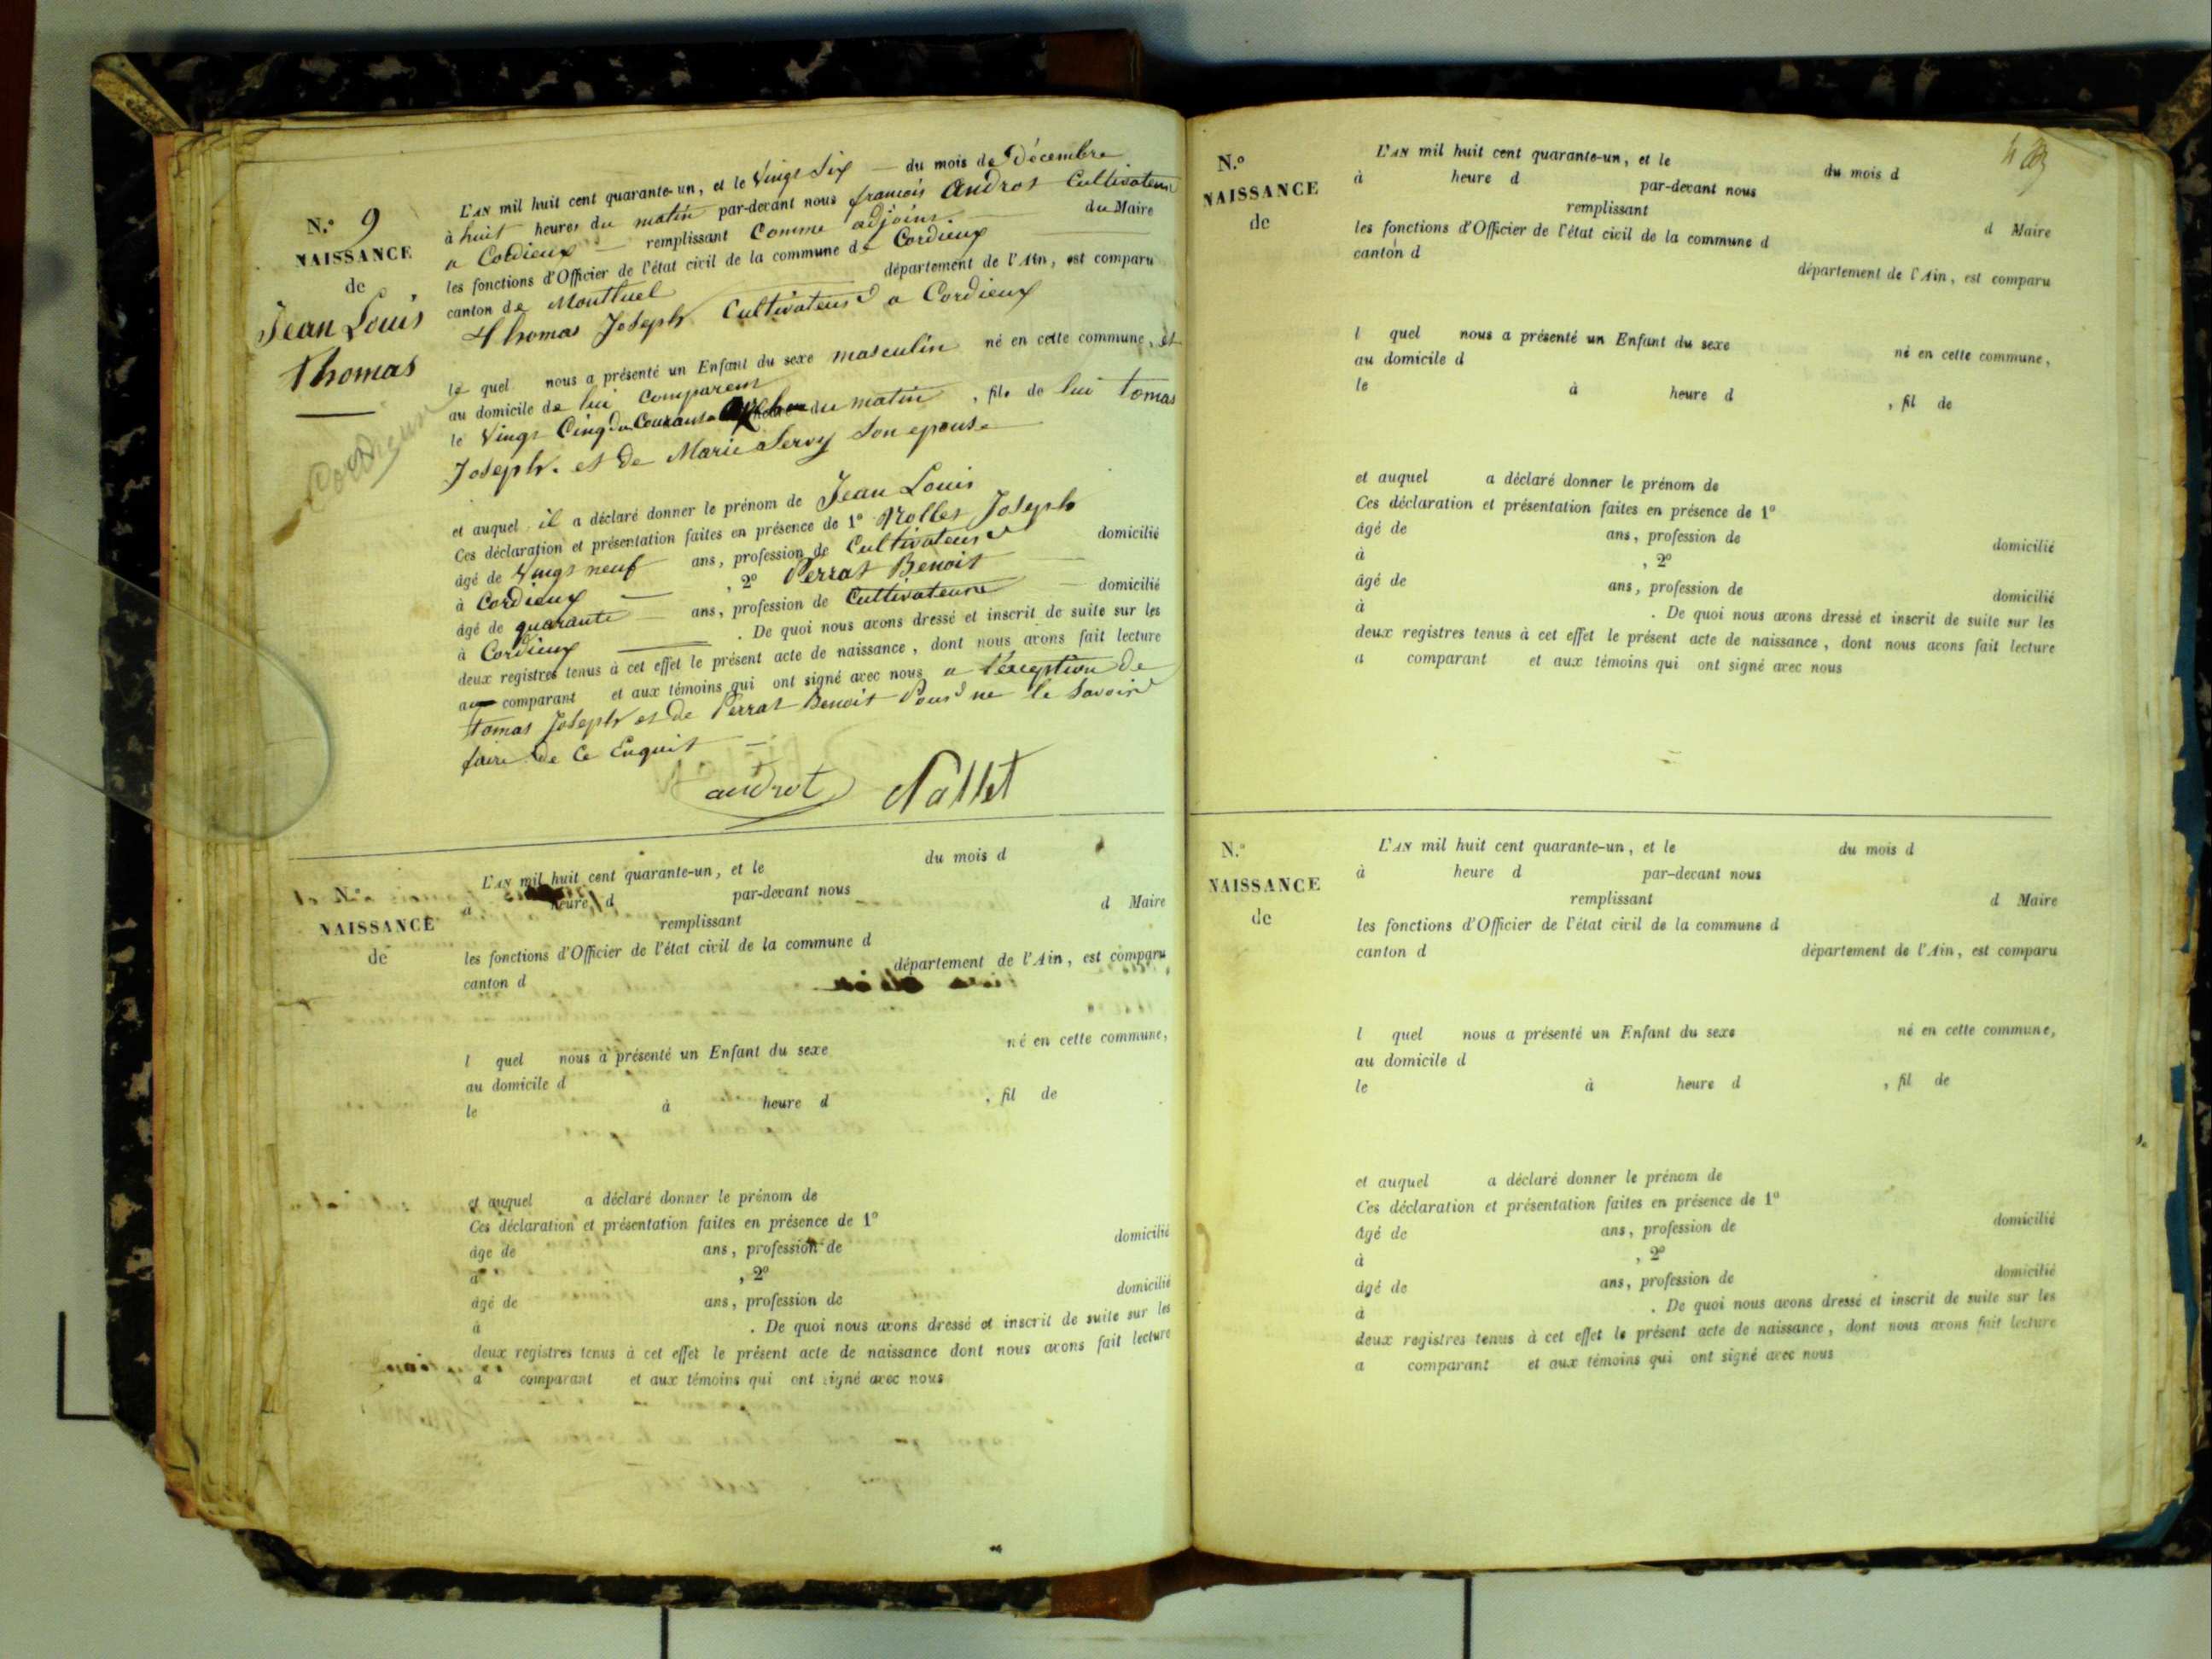 N.º 9
NAISSANCE
de
Jean Louis
Thomas
Cordieux
L'AN mil huit cent quarante-un, et le Vingt Six du mois de Décembre
à huit heures du matin par-devant nous francois Androt Cultivateur
a Cordieux remplissant Comme adjoint. du Maire
les fonctions d'Officier de l'état civil de la commune de Cordieux
canton de Montluel département de l'Ain, est comparu
Thomas Joseph Cultivateur a Cordieux
le quel nous a présenté un Enfant du sexe masculin né en cette commune, et
au domicile de lui Comparent
le Vingt Cinq du Courant à heure du matin, fils de lui tomas
Joseph. et de Marie Servy Son epouse
et auquel il a déclaré donner le prénom de Jean Louis
Ces déclaration et présentation faites en présence de 1º Nollet Joseph
âgé de Vingt neuf ans, profession de Cultivateur domicilié
à Cordieux , 2º Perrat Benoit
âgé de quarante ans, profession de Cultivateur domicilié
à Cordieux . De quoi nous avons dressé et inscrit de suite sur les
deux registres tenus à cet effet le présent acte de naissance, dont nous avons fait lecture
au comparant et aux témoins qui ont signé avec nous a l'exeption de
tomas Joseph et de Perrat Benoit Pour ne le Savoir
faire de Ce Enquit
androt Nallet
N.º
NAISSANCE
de
L'AN mil huit cent quarante-un, et le du mois d
à heure d par-devant nous
remplissant d Maire
les fonctions d'Officier de l'état civil de la commune d
canton d département de l'Ain, est comparu
l quel nous a présenté un Enfant du sexe né en cette commune,
au domicile d
le à heure d , fil de
et auquel a déclaré donner le prénom de
Ces déclaration et présentation faites en présence de 1º
âgé de ans, profession de domicilié
à , 2º
âgé de ans, profession de domicilié
à . De quoi nous avons dressé et inscrit de suite sur les
deux registres tenus à cet effet le présent acte de naissance dont nous avons fait lecture
a comparant et aux témoins qui ont signé avec nous
N.º
NAISSANCE
de
L'AN mil huit cent quarante-un, et le du mois d
à heure d par-devant nous
remplissant d Maire
les fonctions d'Officier de l'état civil de la commune d
canton d département de l'Ain, est comparu
l quel nous a présenté un Enfant du sexe né en cette commune,
au domicile d
le à heure d , fil de
et auquel a déclaré donner le prénom de
Ces déclaration et présentation faites en présence de 1º
âgé de ans, profession de domicilié
à , 2º
âgé de ans, profession de domicilié
à . De quoi nous avons dressé et inscrit de suite sur les
deux registres tenus à cet effet le présent acte de naissance, dont nous avons fait lecture
a comparant et aux témoins qui ont signé avec nous
N.º
NAISSANCE
de
L'AN mil huit cent quarante-un, et le du mois d
à heure d par-devant nous
remplissant d Maire
les fonctions d'Officier de l'état civil de la commune d
canton d département de l'Ain, est comparu
l quel nous a présenté un Enfant du sexe né en cette commune,
au domicile d
le à heure d , fil de
et auquel a déclaré donner le prénom de
Ces déclaration et présentation faites en présence de 1º
âgé de ans, profession de domicilié
à , 2º
âgé de ans, profession de domicilié
à . De quoi nous avons dressé et inscrit de suite sur les
deux registres tenus à cet effet le présent acte de naissance, dont nous avons fait lecture
a comparant et aux témoins qui ont signé avec nous